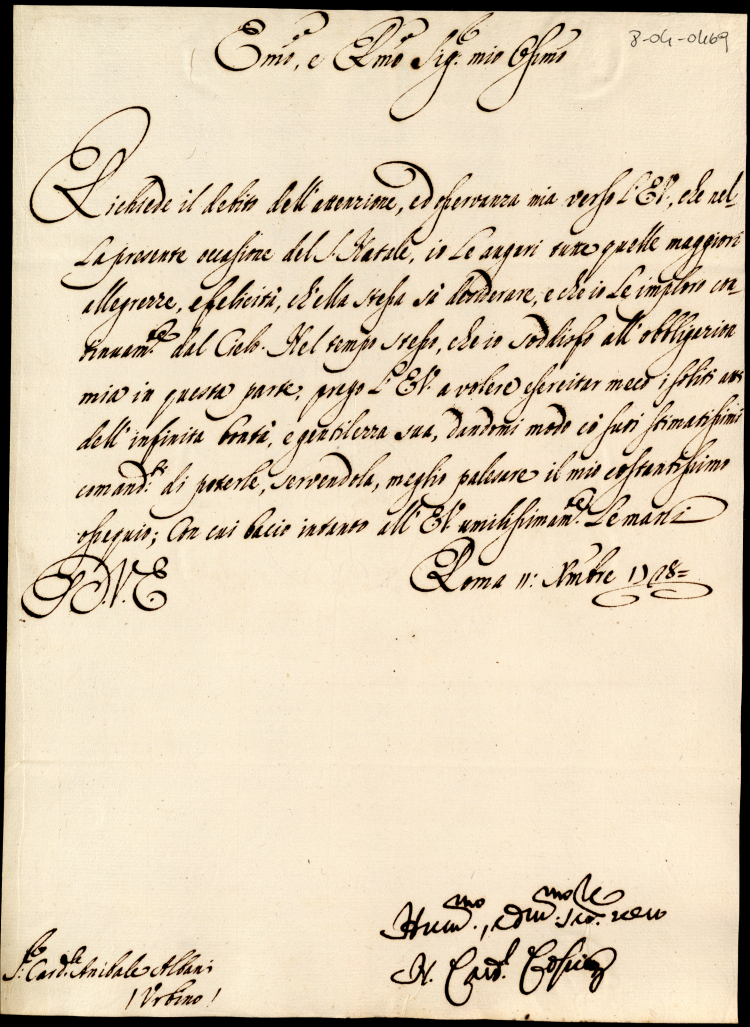 8-04-0469
Emo, e Rmo Sig.re mio Ossmo
Richiede il debito dell'attenzione, ed osservanza mia verso l'E.V., che nel-
la presente occasione del S. Natale, io Le auguri tutte quelle maggiori
allegrezze, e felicità, ch'ella stessa sà desiderare, e che io Le imploro con-
tinuam.te dal Cielo. Nel tempo stesso, che io soddisfo all'obbligazion
mia in questa parte, prego l'E.V. a volere esercitar meco i soliti atti
dell'infinita bontà, e gentilezza sua, dandomi modo co' suoi stimatissimi
comand.ti di poterle, servendola, meglio palesare il mio costantissimo
ossequio; Con cui bacio intanto all'E.V. umilissimam.te Le mani
D.V.E.
Roma 11: Xmbre 1728=
Hum.mo, e
N. Card.l Coscia
S.r Card.le Anibale Albani
(Urbino)